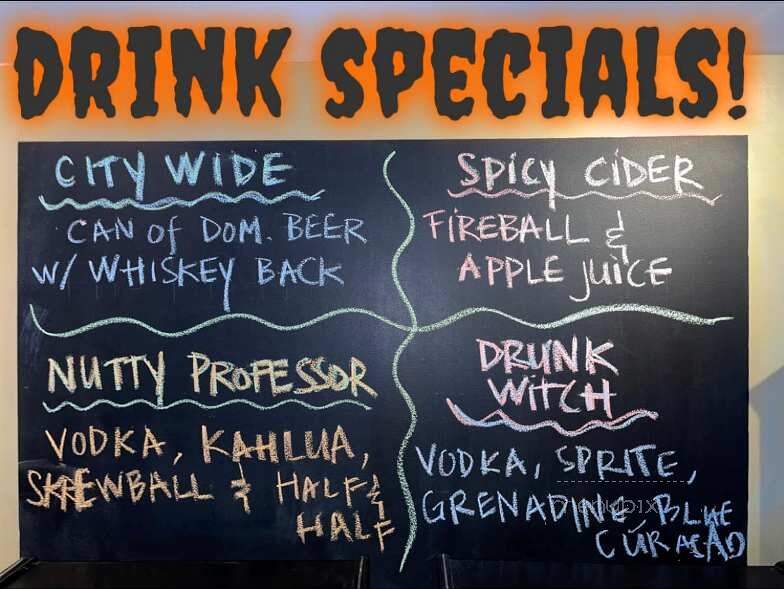 DRINK SPECIALS!
CITY WIDE
CAN of DOM. BEER
W/ WHISKEY BACK
SPICY CIDER
FIREBALL &
APPLE JUICE
NUTTY PROFESSOR
VODKA, KAHLUA,
SKREWBALL & HALF &
HALF
DRUNK
WITCH
VODKA, SPRITE,
GRENADINE, BLUE
CURAÇAO
menupix